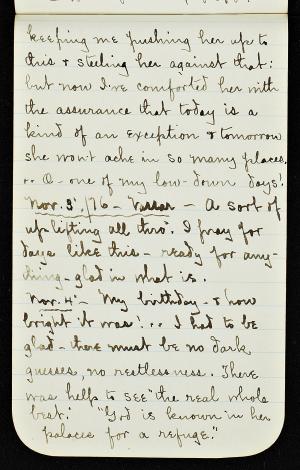 keeping me pushing her up to
this & steeling her against that:
but now I've comforted her with
the assurance that today is a
kind of an exception & tomorrow
she won't ache in so many places.
.. O - one of my low-down days!
Nov. 3', /76 - Vassar - A sort of
uplifting all thro'. I pray for
days like this - ready for any-
thing - glad in what is.
Nov. 4' - My birthday - & how
bright it was! .. I had to be
glad - there must be no dark
guesses, no restlessness. There
was help to see "the real whole
best." "God is known in her
palaces for a refuge."